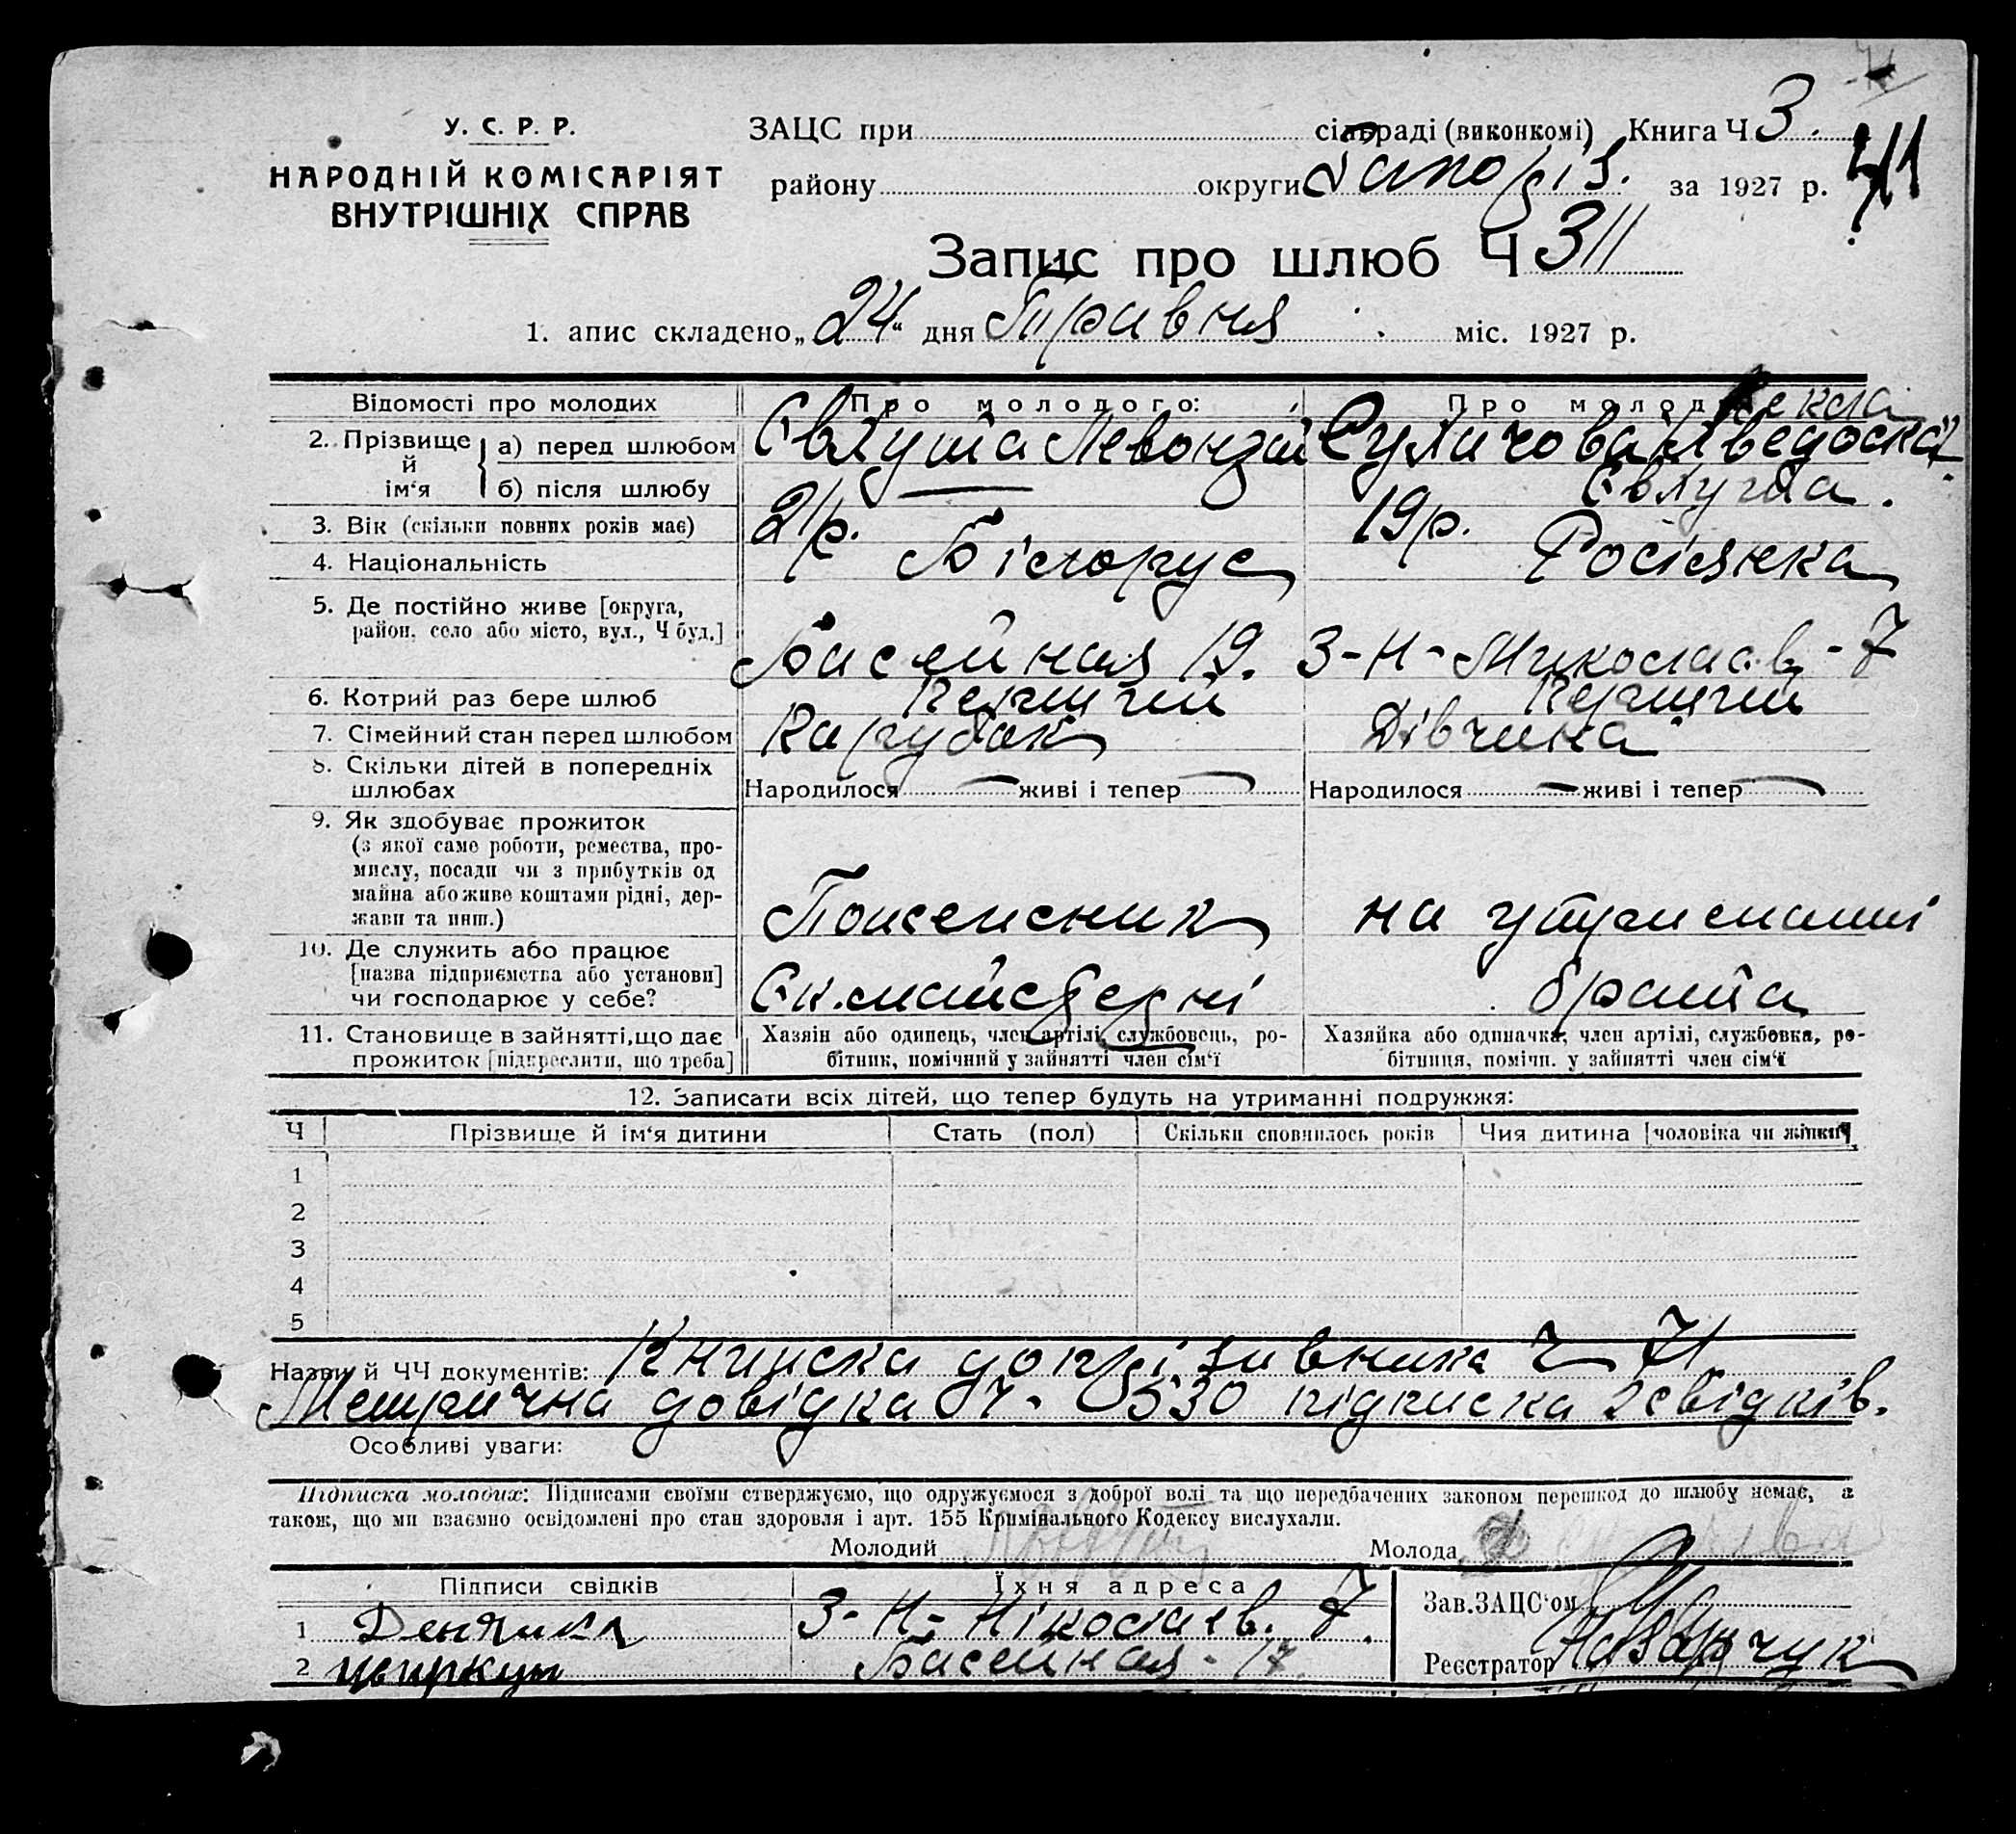 У. С. Р. Р.
НАРОДНІЙ КОМІСАРІЯТ
ВНУТРІШНІХ СПРАВ
ЗАЦС при сільраді (виконкомі) Книга Ч 3.
району округи Запоріз. за 1927 р.
Запис про шлюб Ч 311
1. апис складено „24“ дня Травня міс. 1927 р.
Відомості про молодих Про молодого: Про молод
2. Прізвище й ім‘я
а) перед шлюбом Євлута
б) після шлюбу Євлута.
3. Вік (скільки повних років має) 21р. 19р.
4. Національність Білорус Росіянка
5. Де постійно живе [округа, район, село або місто, вул., Ч буд.] Басейная 19. З-Н-Миколаев-7
6. Котрий раз бере шлюб Перший Перший
7. Сімейний стан перед шлюбом Парубок Дівчина
8. Скільки дітей в попередніх шлюбах Народилося — живі і тепер — Народилося — живі і тепер —
9. Як здобуває прожиток
(з якої саме роботи, ремества, про-
мислу, посади чи з прибутків од
майна або живе коштами рідні, дер-
жави та инш.) на утриманні
10. Де служить або працює
[назва підприємства або установи]
чи господарює у себе? брата
11. Становище в зайнятті, що дає
прожиток [підкреслити, що треба]
Хазяїн або одинець, член артілі, службовець, ро-
бітник, помічний у зайнятті член сім‘ї
Хазяйка або одиначка, член артілі, службовка, ро-
бітниця, помічн. у зайнятті член сім‘ї
12. Записати всіх дітей, що тепер будуть на утриманні подружжя:
Ч Прізвище й ім‘я дитини Стать (пол) Скільки сповнилось років Чия дитина [чоловіка чи жінки]
1
2
3
4
5
Назви й ЧЧ документів: Книжка допризивника Ч 71
Метрична довідка Ч- 530 підписка 2 свідків.
Особливі уваги:
Підписка молодих: Підписами своїми стверджуємо, що одружуємося з доброї волі та що передбачених законом перешкод до шлюбу немає, а
також, що ми взаємно освідомлені про стан здоровля і арт. 155 Кримінального Кодексу вислухали.
Молодий Молода
Підписи свідків Їхня адреса
1 З-Н-Ніколаев. 7.
2 Басейная - 17.
Зав. ЗАЦС‘ом
Реєстратор Назарчук